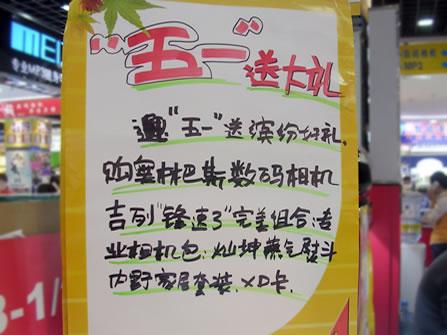 "五一"送大礼
迎"五一"送缤纷好礼.
购奥林巴斯数码相机
吉列"锋速3"完美组合:专
业相机包:灿坤蒸气熨斗
内野家居套装.XD卡.
专业MP3
MP3